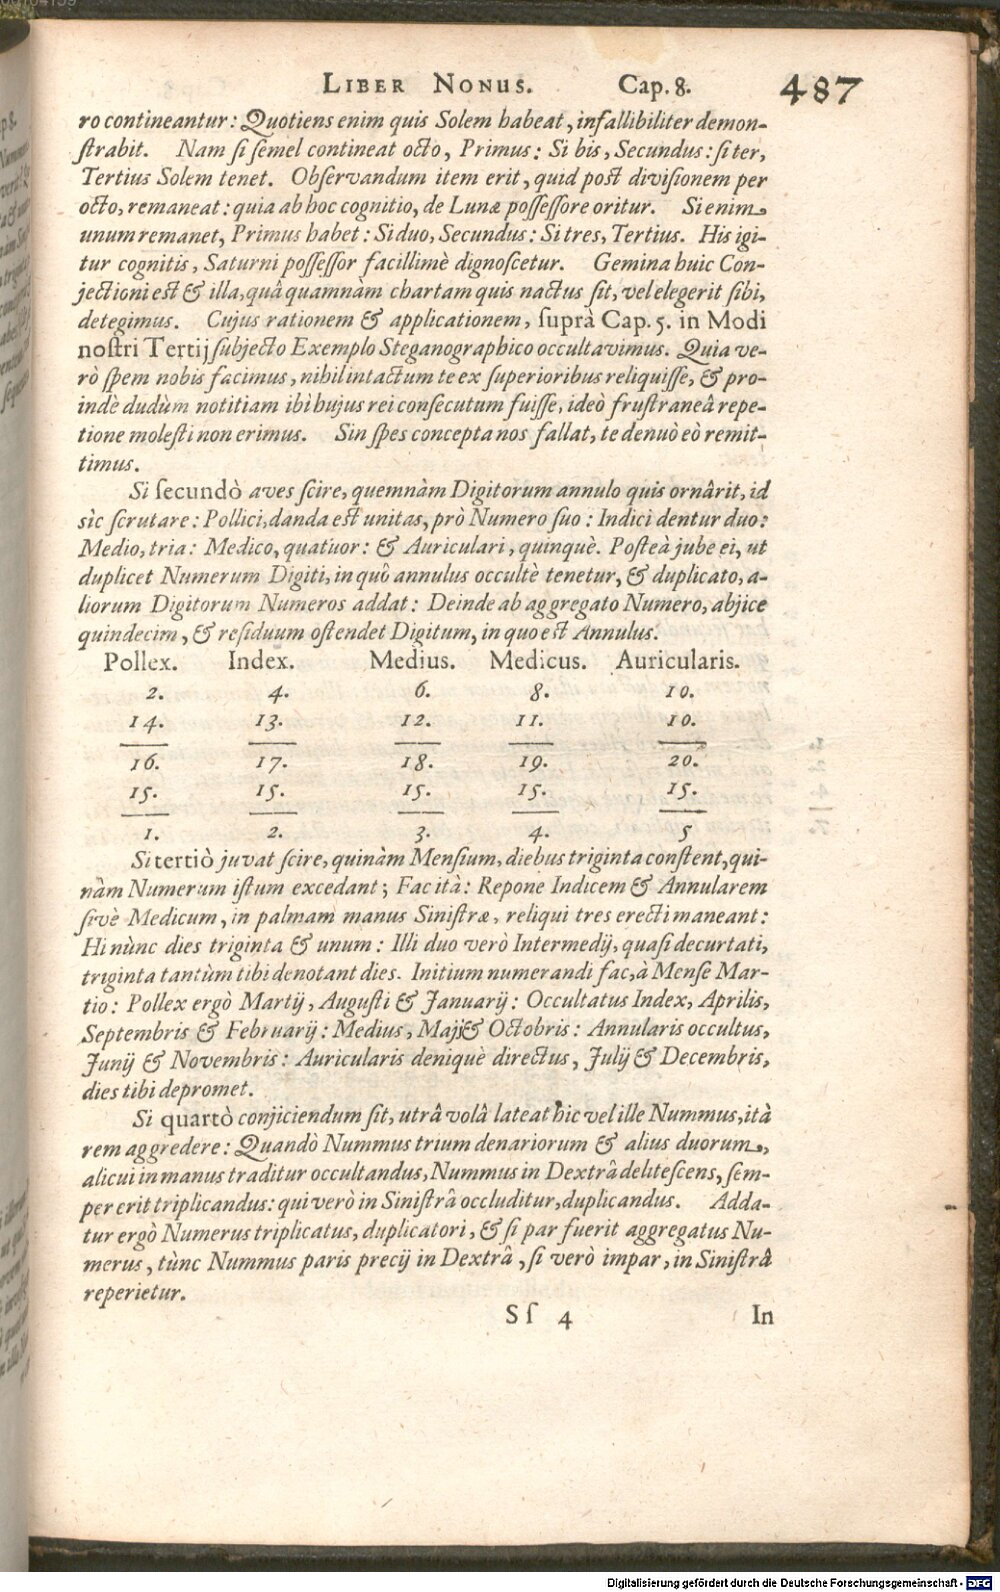 LIBER NONUS. Cap. 8. 487
ro contineantur: Quotiens enim quis Solem habeat, infallibiliter demon-
ſtrabit. Nam ſi ſemel contineat octo, Primus: Si bis, Secundus: ſi ter,
Tertius Solem tenet. Obſervandum item erit, quid poſt diviſionem per
octo, remaneat: quia ab hoc cognitio, de Lunæ poſſeſſore oritur. Si enim
unum remanet, Primus habet: Si duo, Secundus: Si tres, Tertius. His igi-
tur cognitis, Saturni poſſeſſor facillimè dignoſcetur. Gemina huic Con-
jectioni eſt & illa, quâ quamnàm chartam quis nactus ſit, vel elegerit ſibi,
detegimus. Cujus rationem & applicationem, ſuprà Cap. 5. in Modi
noſtri Tertij ſubjecto Exemplo Steganographico occultavimus. Quia ve-
rò ſpem nobis facimus, nihil intactum te ex ſuperioribus reliquiſſe, & pro-
indè dudùm notitiam ibi hujus rei conſecutum fuiſſe, ideò fruſtraneâ repe-
titione moleſti non erimus. Sin ſpes concepta nos fallat, te denuò eò remit-
timus.
Si ſecundò aves ſcire, quemnàm Digitorum annulo quis ornârit, id
sìc ſcrutare: Pollici, danda eſt unitas, prò Numero ſuo: Indici dentur duo:
Medio, tria: Medico, quatuor: & Auriculari, quinquè. Poſteà jube ei, ut
duplicet Numerum Digiti, in quô annulus occultè tenetur, & duplicato, a-
liorum Digitorum Numeros addat: Deinde ab aggregato Numero, abjice
quindecim, & reſiduum oſtendet Digitum, in quo eſt Annulus.
Pollex. Index. Medius. Medicus. Auricularis.
2. 4. 6. 8. 10.
14. 13. 12. 11. 10.
16. 17. 18. 19. 20.
15. 15. 15. 15. 15.
1. 2. 3. 4. 5
Si tertiò juvat ſcire, quinàm Menſium, diebus triginta conſtent, qui-
nàm Numerum iſtum excedant; Fac ità: Repone Indicem & Annularem
ſivè Medicum, in palmam manus Siniſtræ, reliqui tres erecti maneant:
Hi nùnc dies triginta & unum: Illi duo verò Intermedij, quaſi decurtati,
triginta tantùm tibi denotant dies. Initium numerandi fac, à Menſe Mar-
tio: Pollex ergò Martij, Auguſti & Januarij: Occultatus Index, Aprilis,
Septembris & Februarij: Medius, Maji & Octobris: Annularis occultus,
Junij & Novembris: Auricularis deniquè directus, Julij & Decembris,
dies tibi depromet.
Si quartò conjiciendum ſit, utrâ volâ lateat hic vel ille Nummus, ità
rem aggredere: Quandò Nummus trium denariorum & alius duorum,
alicui in manus traditur occultandus, Nummus in Dextrâ deliteſcens, ſem-
per erit triplicandus: qui verò in Siniſtrâ occluditur, duplicandus. Adda-
tur ergò Numerus triplicatus, duplicatori, & ſi par fuerit aggregatus Nu-
merus, tùnc Nummus paris precij in Dextrâ, ſi verò impar, in Siniſtrâ
reperietur.
S ſ 4 In
Digitalisierung gefördert durch die Deutsche Forschungsgemeinschaft - DFG